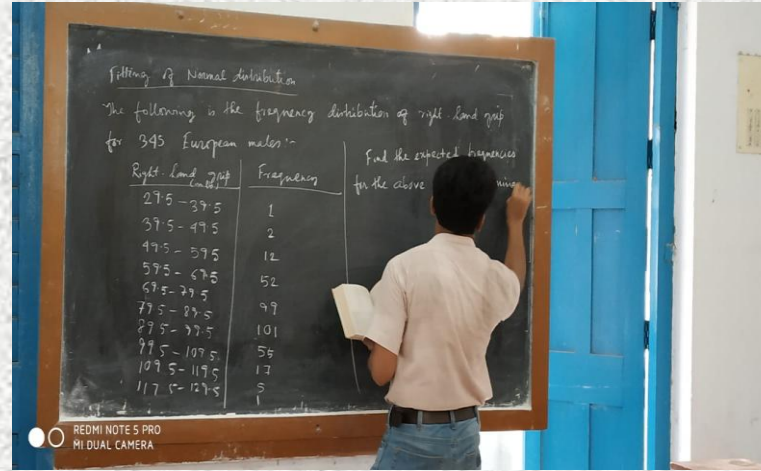 Fitting of Normal distribution
The following is the frequency distribution of right-hand grip
for 345 European males:-
Right-hand grip Frequency
29.5 - 39.5 1
39.5 - 49.5 2
49.5 - 59.5 12
59.5 - 69.5 52
69.5 - 79.5 99
79.5 - 89.5 101
89.5 - 99.5 55
99.5 - 109.5 17
109.5 - 119.5 5
117.5 - 129.5 1
Find the expected frequencies
for the above
REDMI NOTE 5 PRO
MI DUAL CAMERA